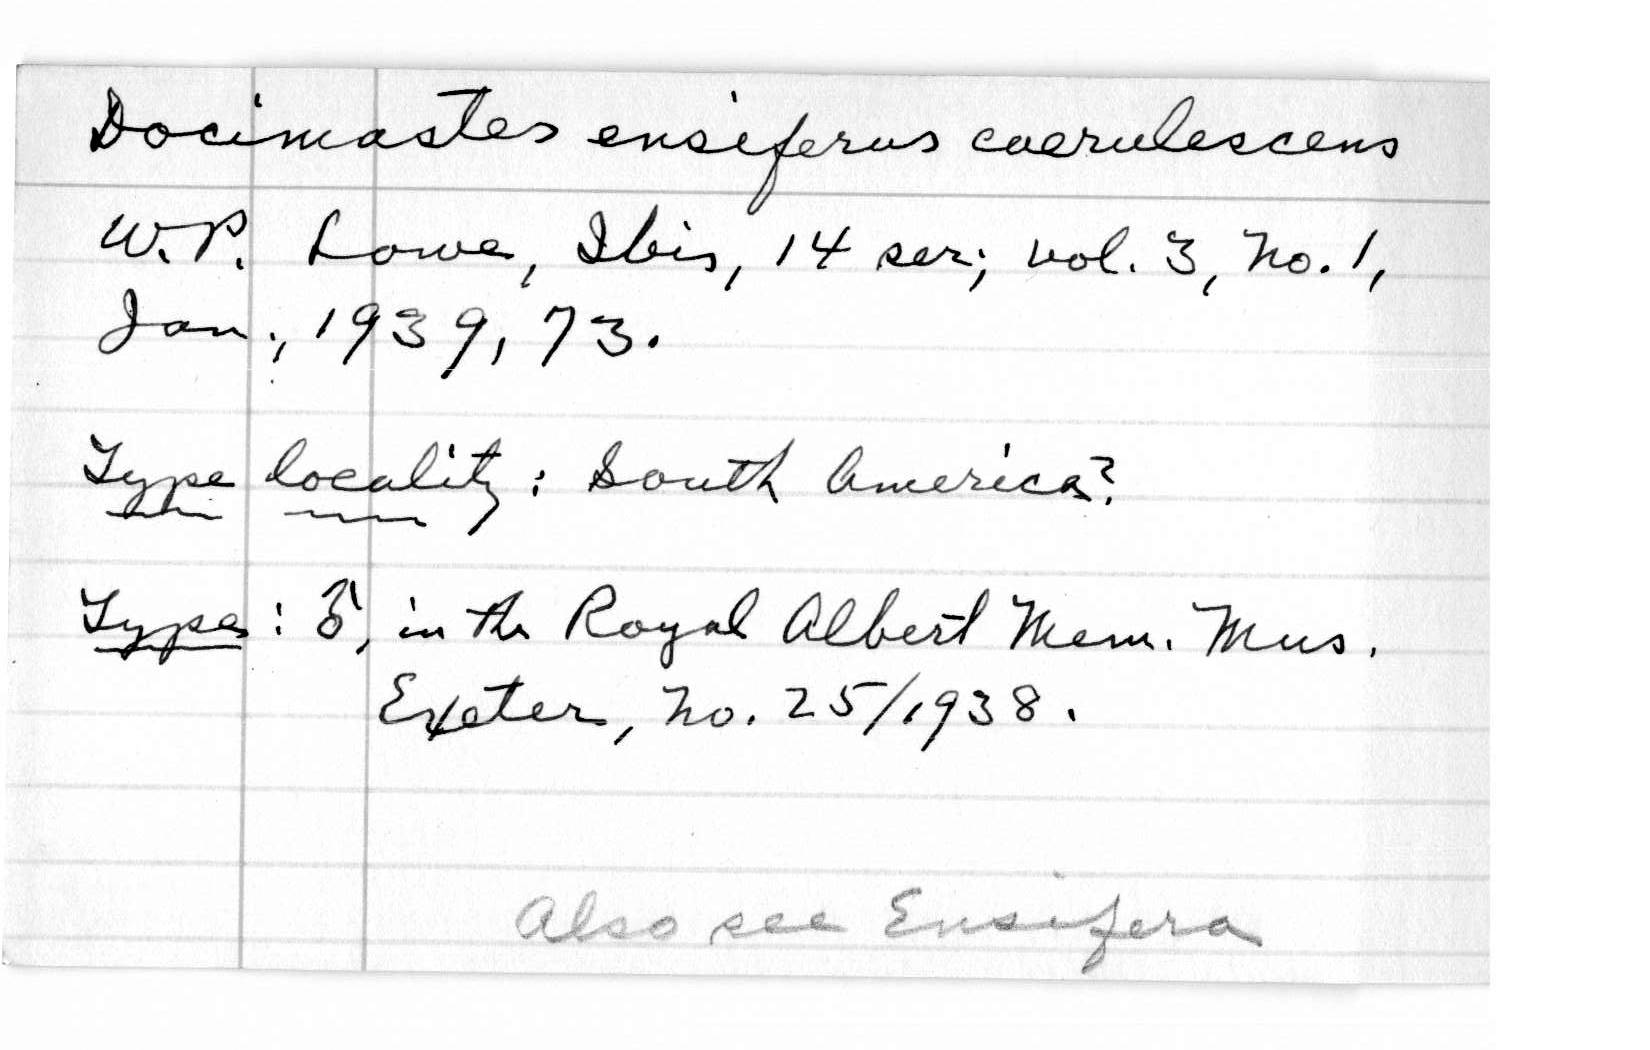 Docimastes ensiferus caerulescens
W.P. Lowe, Ibis, 14 ser; vol. 3, no. 1,
Jan., 1939, 73.
Type locality: South America?
Type: ♂, in the Royal Albert Mem. Mus.
Exeter, no. 25/1938.
Also see Ensifera